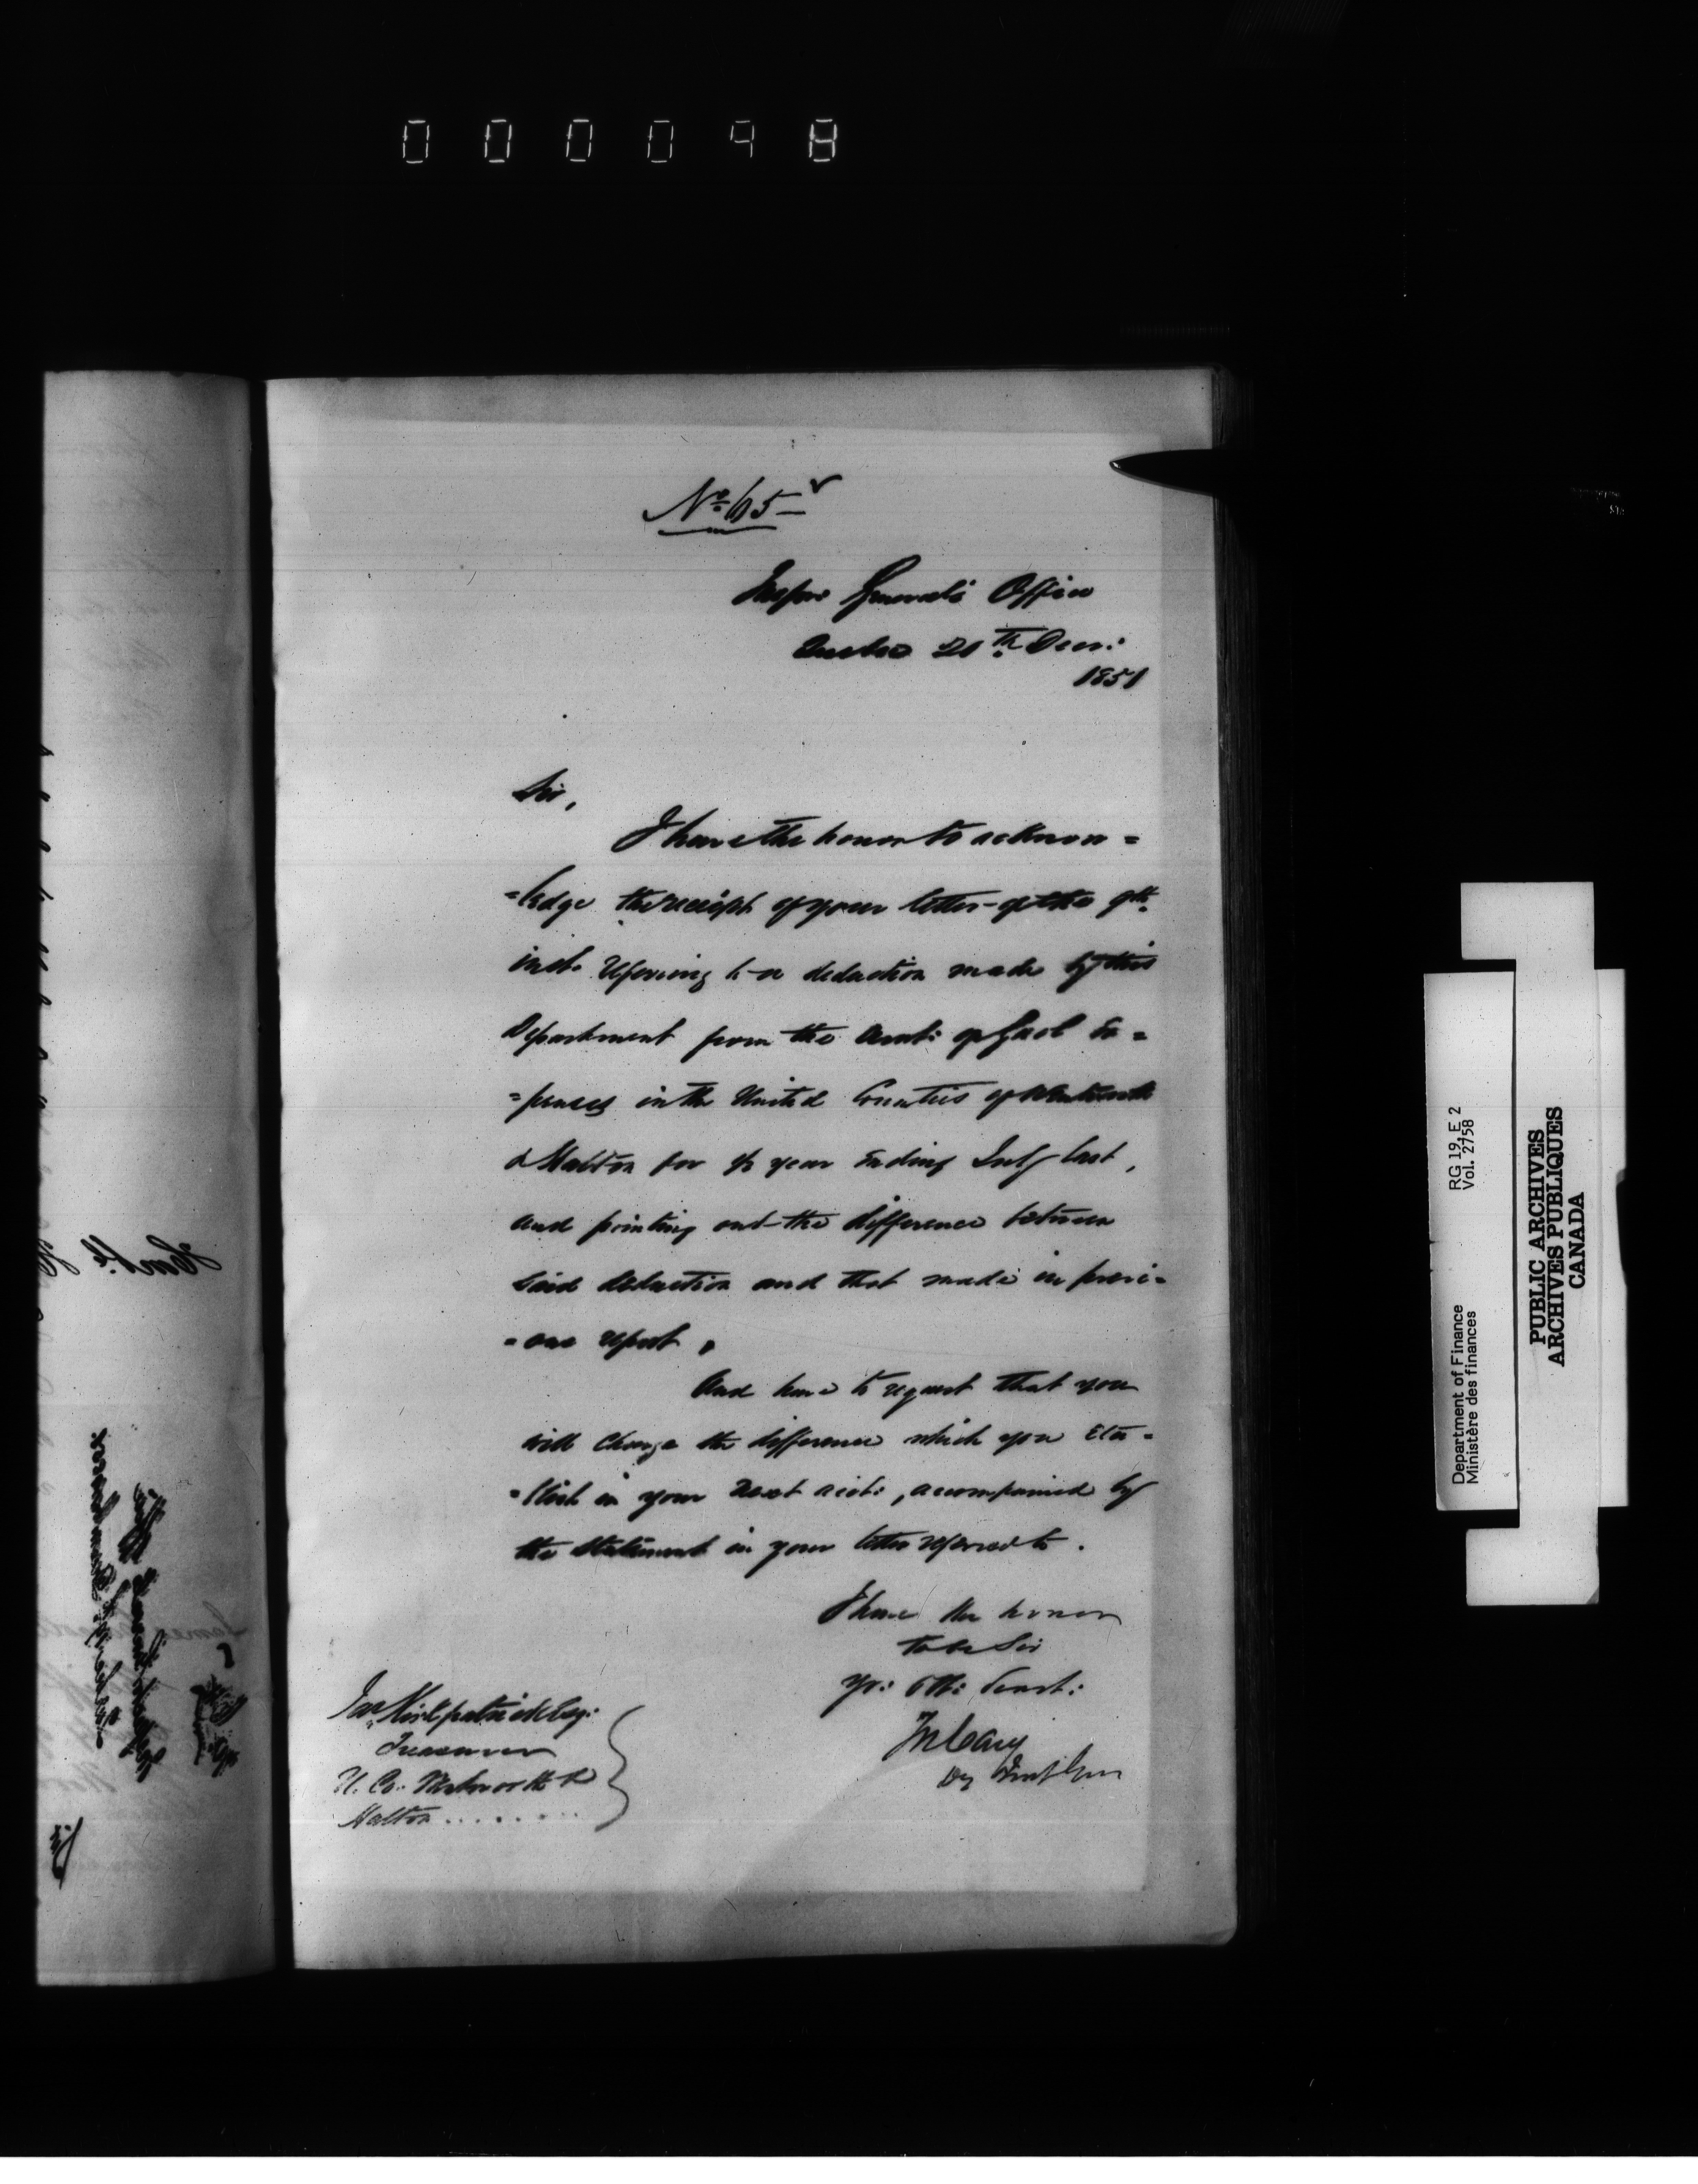 000098
No 65
Inspr Generals Office
Quebec 20th Decr:
1851
Sir,
I have the honor to acknow=
=ledge the receipt of your letter of the 9th
inst. referring to a deduction made by this
Department from the amt: of Gaol Ex=
=penses in the United Counties of Wentworth
& Halton for ye year ending July last,
and pointing out the difference between
said deduction and that made in previ=
=ous report.
And have to request that you
will charge the difference which you
in your next acct:, accompanied by
the statement in your letter referred to.
I have the honor
to be Sir
yr: Obt: Servt:
Jn Cary
Dy Inspr Gen
Jas Kirkpatrick Esq:
Treasurer
U. Co. Wentworth &
Halton........
Department of Finance RG 19, E 2
Ministère des finances Vol. 2758
PUBLIC ARCHIVES
ARCHIVES PUBLIQUES
CANADA